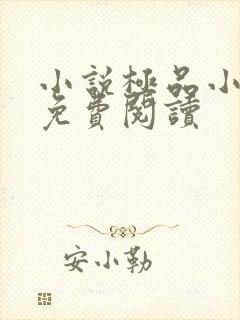 小說極品小
免費閱讀
安小勒